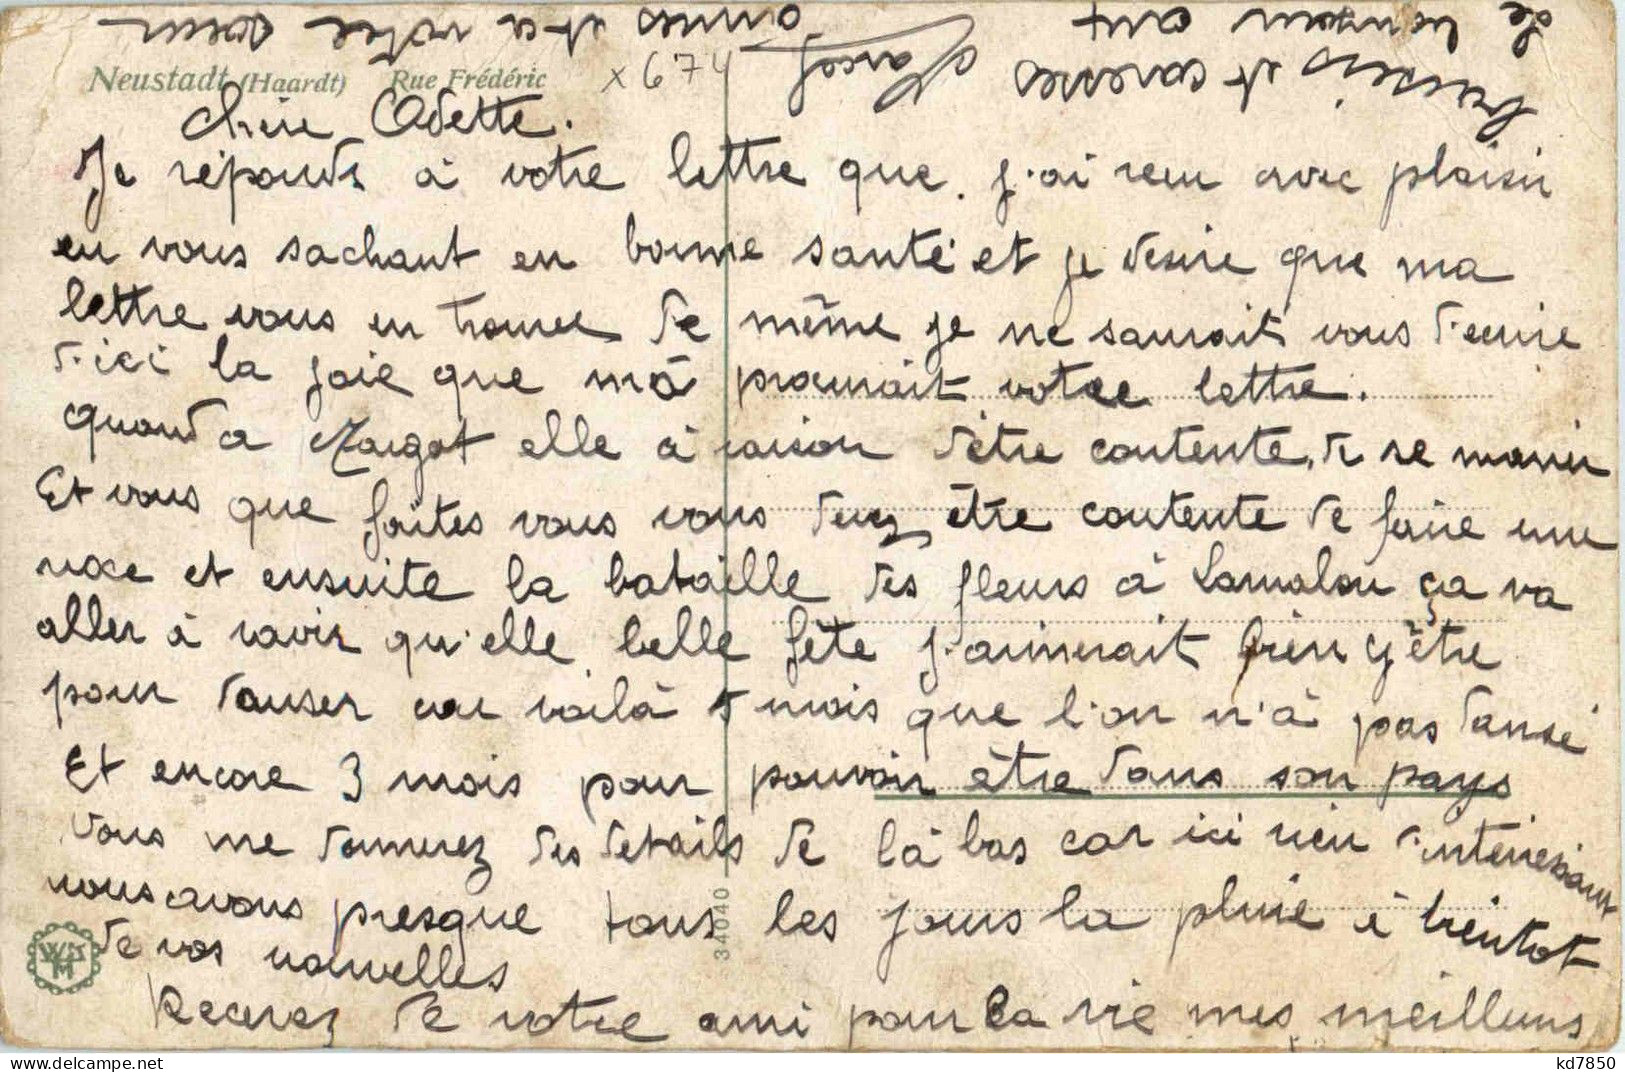 Neustadt (Haardt) Rue Frédéric
x 674
chère Odette.
Je réponds à votre lettre que j'ai recu avec plaisir
en vous sachant en bonne santé et je desire que ma
lettre vous en trouve de même je ne saurait vous décrire
d'ici la joie que mà procurait votre lettre.
quand a Margot elle à raison d'être contente, de se marier
Et vous que faites vous vous devez être contente de faire une
noce et ensuite la bataille des fleurs à Lamalou ça va
aller à ravir qu'elle belle fête j'aimerait bien y être
pour danser car voilà 5 mois que l'on n'à pas dansé
Et encore 3 mois pour pouvoir être dans son pays
Vous me donnerez des details de là bas car ici rien d'interressant
nous avons presque tous les jours la pluie à bientot
de vos nouvelles
Recevez de votre ami pour la vie mes meilleurs
baisers et caresses Marcel
le bonjour aux amies et a votre soeur
34040
W M
kd7850